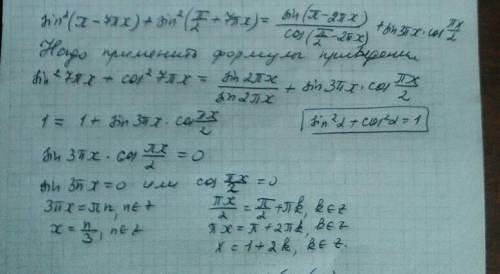 sin²(π-7πx)+sin²(π/2+7πx)= sin(π-2πx)/cos(π/2-2πx) + sin3πx·cos πx/2
Надо применить формулы приведени
sin²7πx+cos²7πx = sin2πx/sin2πx + sin3πx·cos πx/2
1 = 1 + sin3πx·cos πx/2   sin²α+cos²α=1
sin3πx·cos πx/2 =0
sin3πx=0 или cos πx/2 =0
3πx=πn, n∈z   πx/2 = π/2 +πk, k∈z
x= n/3, n∈z   πx=π+2πk, k∈z
x=1+2k, k∈z.